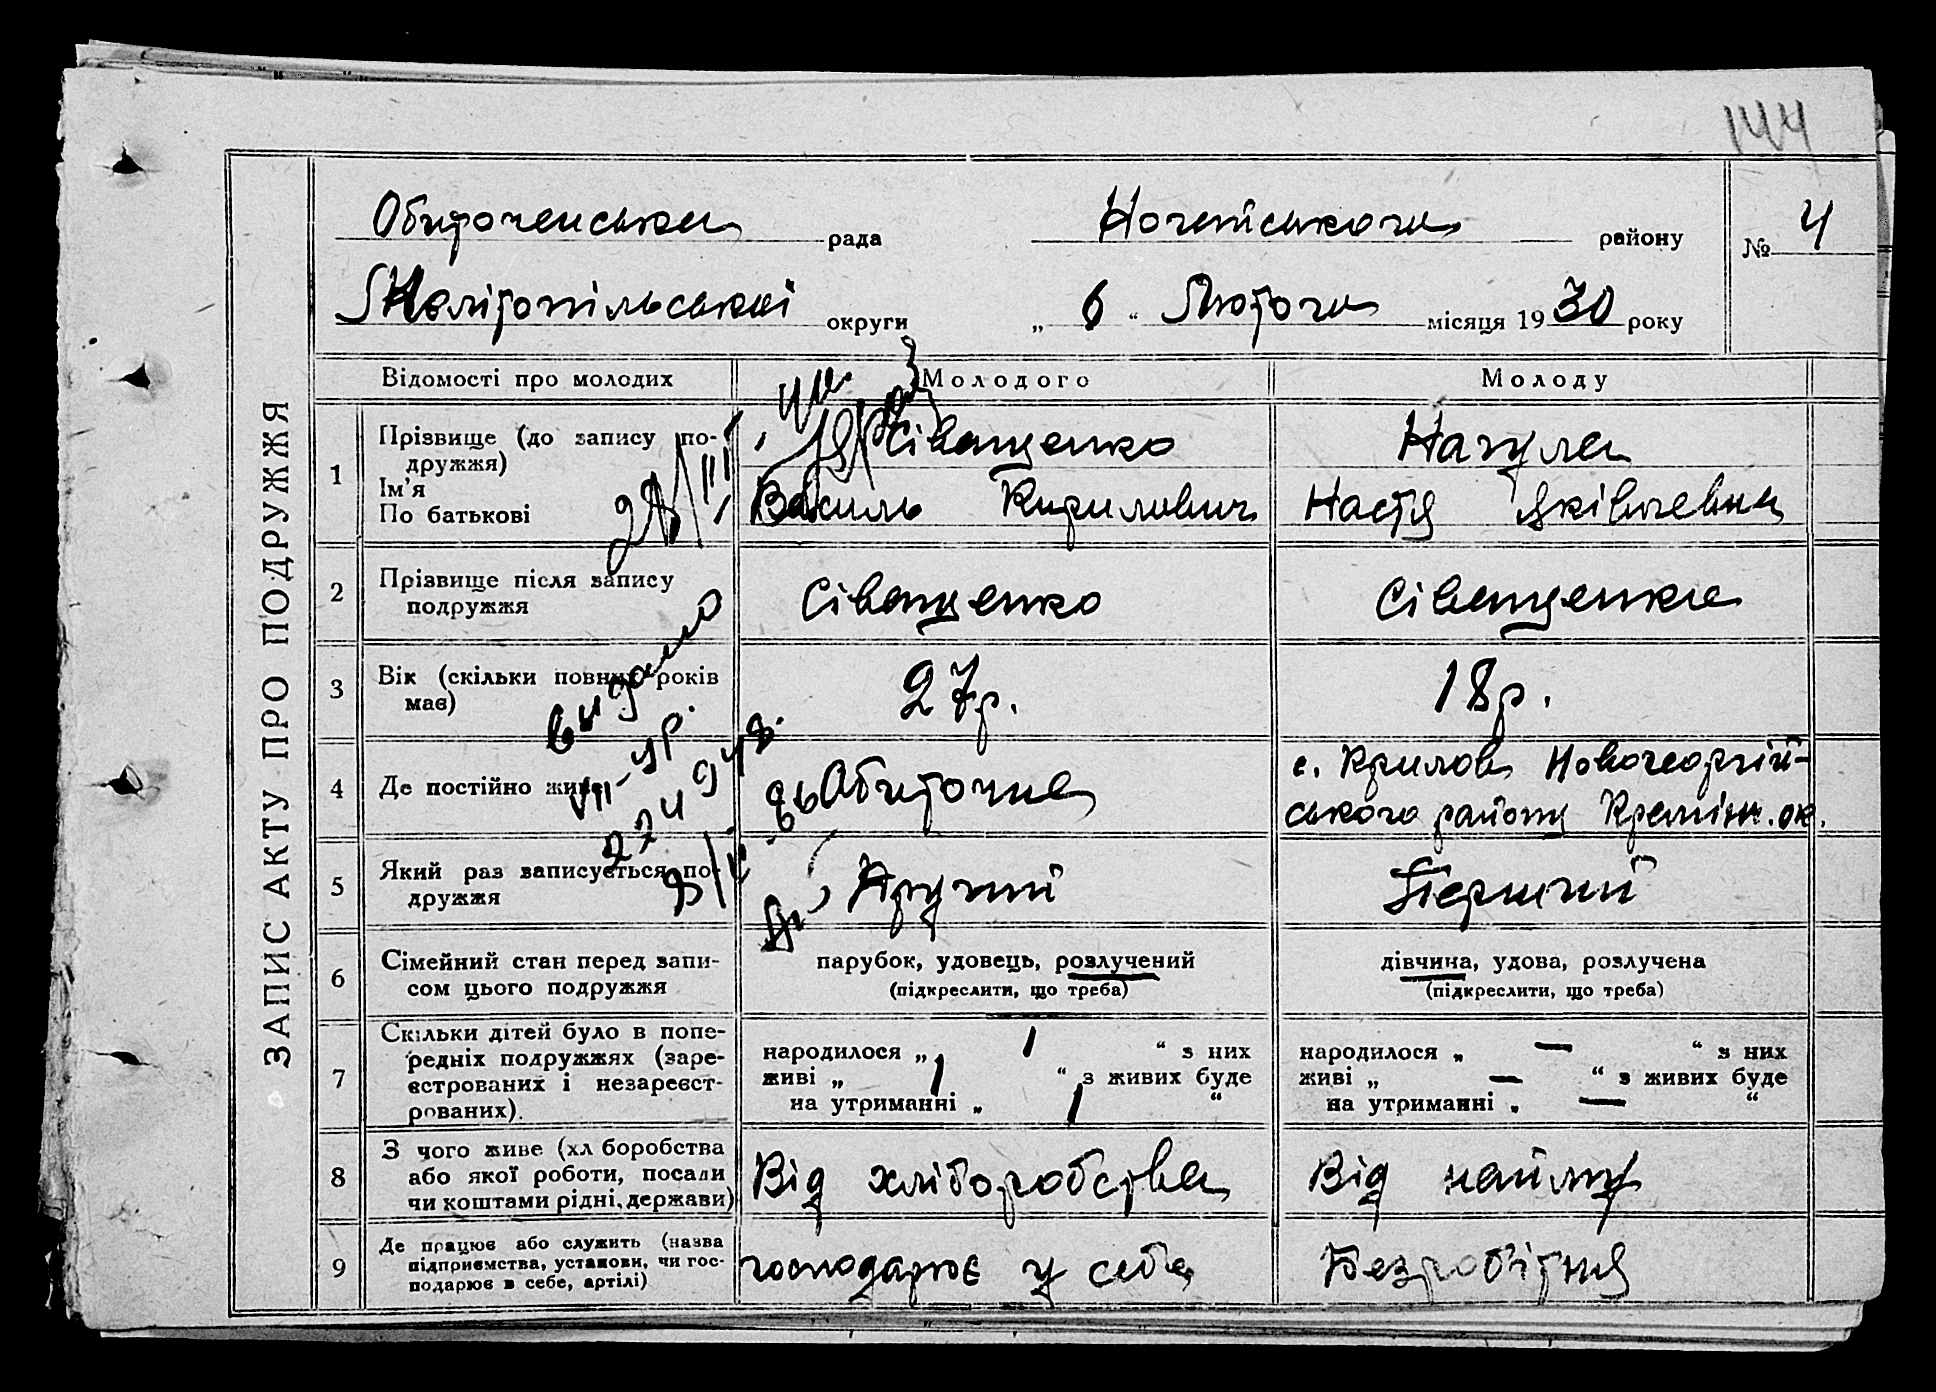 144
ЗАПИС АКТУ ПРО ПОДРУЖЖЯ
Обиточенська рада Ногайського району № 4
Мелітопільської округи „ 6 “ Лютого місяця 1930 року
Відомості про молодих Молодого Молоду
1 Прізвище (до запису по-
дружжя)
Ім’я
По батькові
Сіващенко
Василь Кирилович
Нагула
Настя Яківлевна
2 Прізвище після запису
подружжя
Сіващенко
Сіващенка
3 Вік (скільки повних років
має)
27р.
18р.
видано
4 Де постійно живе
Обиточна
с. Крилов Новогеоргій-
ського району Кремінч. ок.
5 Який раз записується по-
дружжя
Другий
Перший
6 Сімейний стан перед запи-
сом цього подружжя
парубок, удовець, розлучений
(підкреслити, що треба)
дівчина, удова, розлучена
(підкреслити, що треба)
7 Скільки дітей було в попе-
редніх подружжях (заре-
єстрованих і незареєст-
рованих).
народилося „ 1 “ з них
живі „ 1 “ з живих буде
на утриманні „ 1 “
народилося „ — “ з них
живі „ — “ з живих буде
на утриманні „ — “
8 З чого живе (хл боробства
або якої роботи, посади
чи коштами рідні, держави)
Від хліборобства
Від найму
9 Де працює або служить (назва
підприємства, установи, чи гос-
подарює в себе, артілі)
господарює у себе
Безробітня